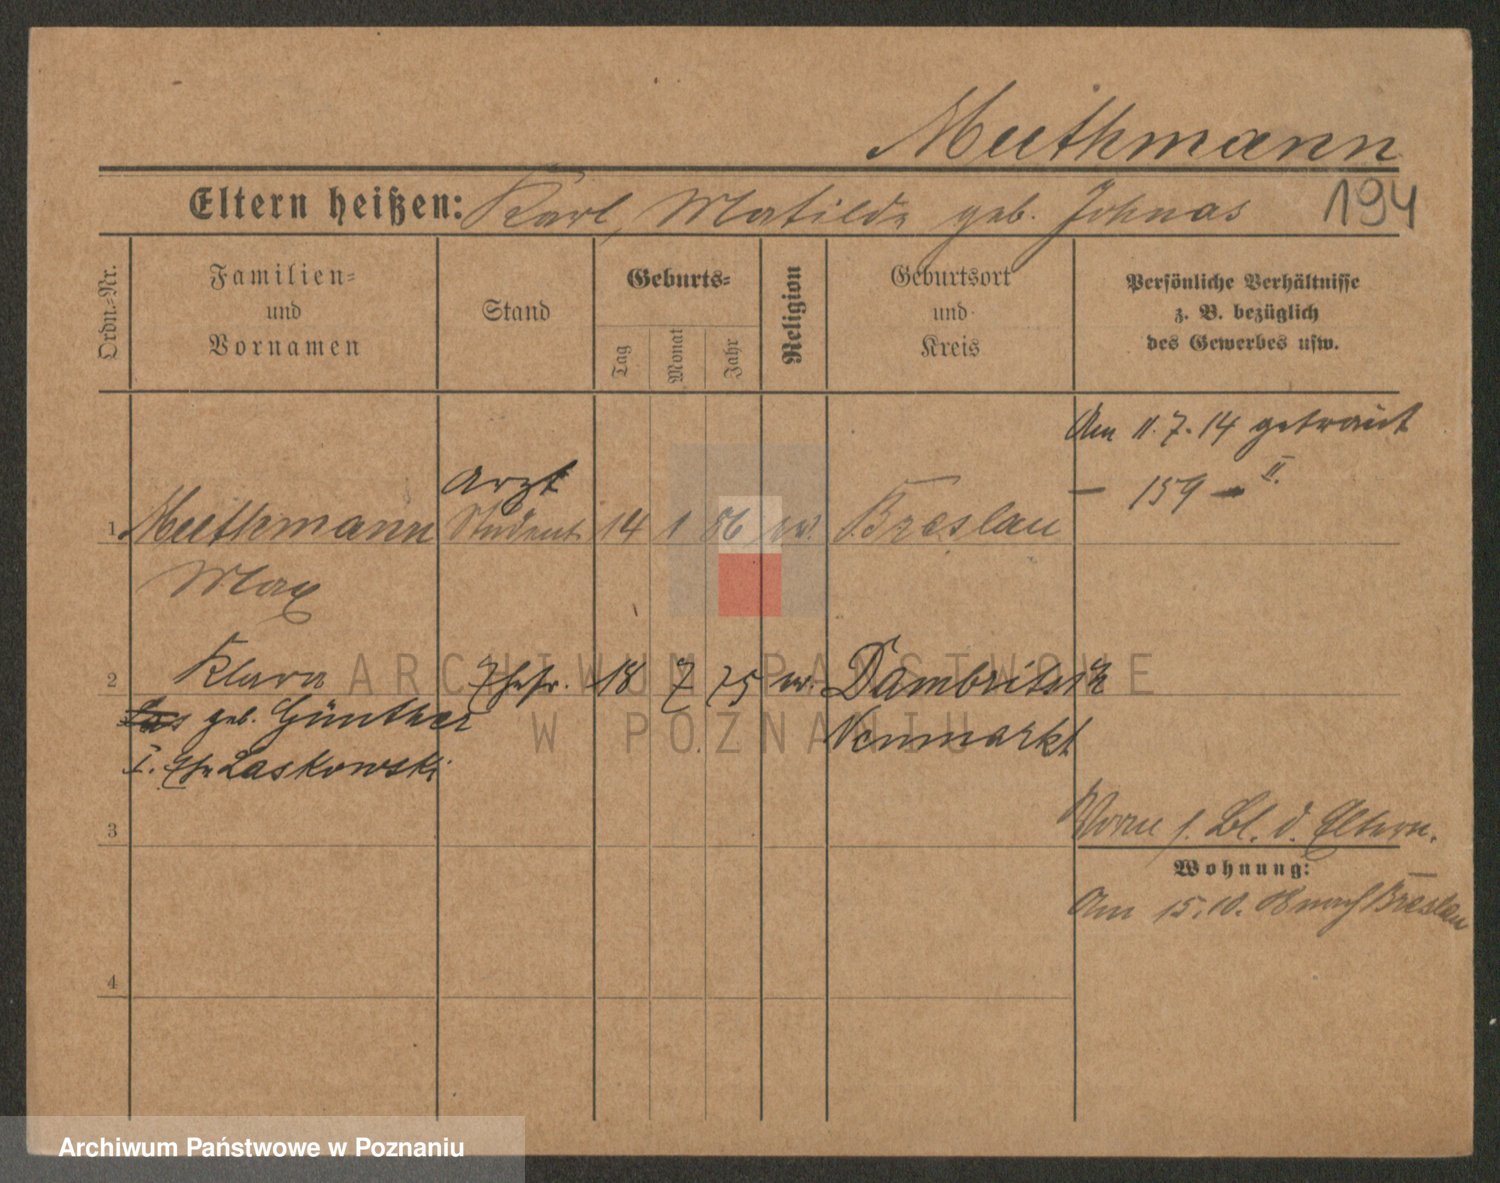 Muthmann
Eltern heißen: Karl, Matilde geb. Johnas
194
Ordn.-Nr.
Familien-
und
Vornamen
Stand
Geburts-
Tag
Monat
Jahr
Religion
Geburtsort
und
Kreis
Persönliche Verhältnisse
z. B. bezüglich
des Gewerbes usw.
Am 11.7.14 getraut
– 159 – II.
Arzt
1 Muthmann Student 14 1 86 ev. Breslau
Max
2 Klara Ehefr. 18 7 75 ev. Dambritsch
geb. Günther Neumarkt
I. Ehe Laskowski
3
Vorne s. Bl. d. Eltern.
Wohnung:
Am 15.10.08 nach Breslau
4
ARCHIWUM PAŃSTWOWE
W POZNANIU
Archiwum Państwowe w Poznaniu